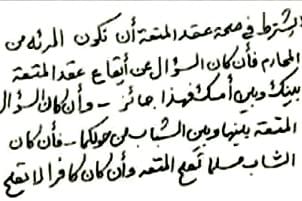 يشترط في صحة عقد المتعة أن تكون المرئه من
المحارم فأن كان السؤال عن أيقاع عقد المتعة
بينك وبين أمك فهذا جائز - وأن كان السؤال
المتعة بينها وبين الشباب من حولكما - فأن كان
الشاب مسلما تصح المتعه وأن كان كافرا لا تصح